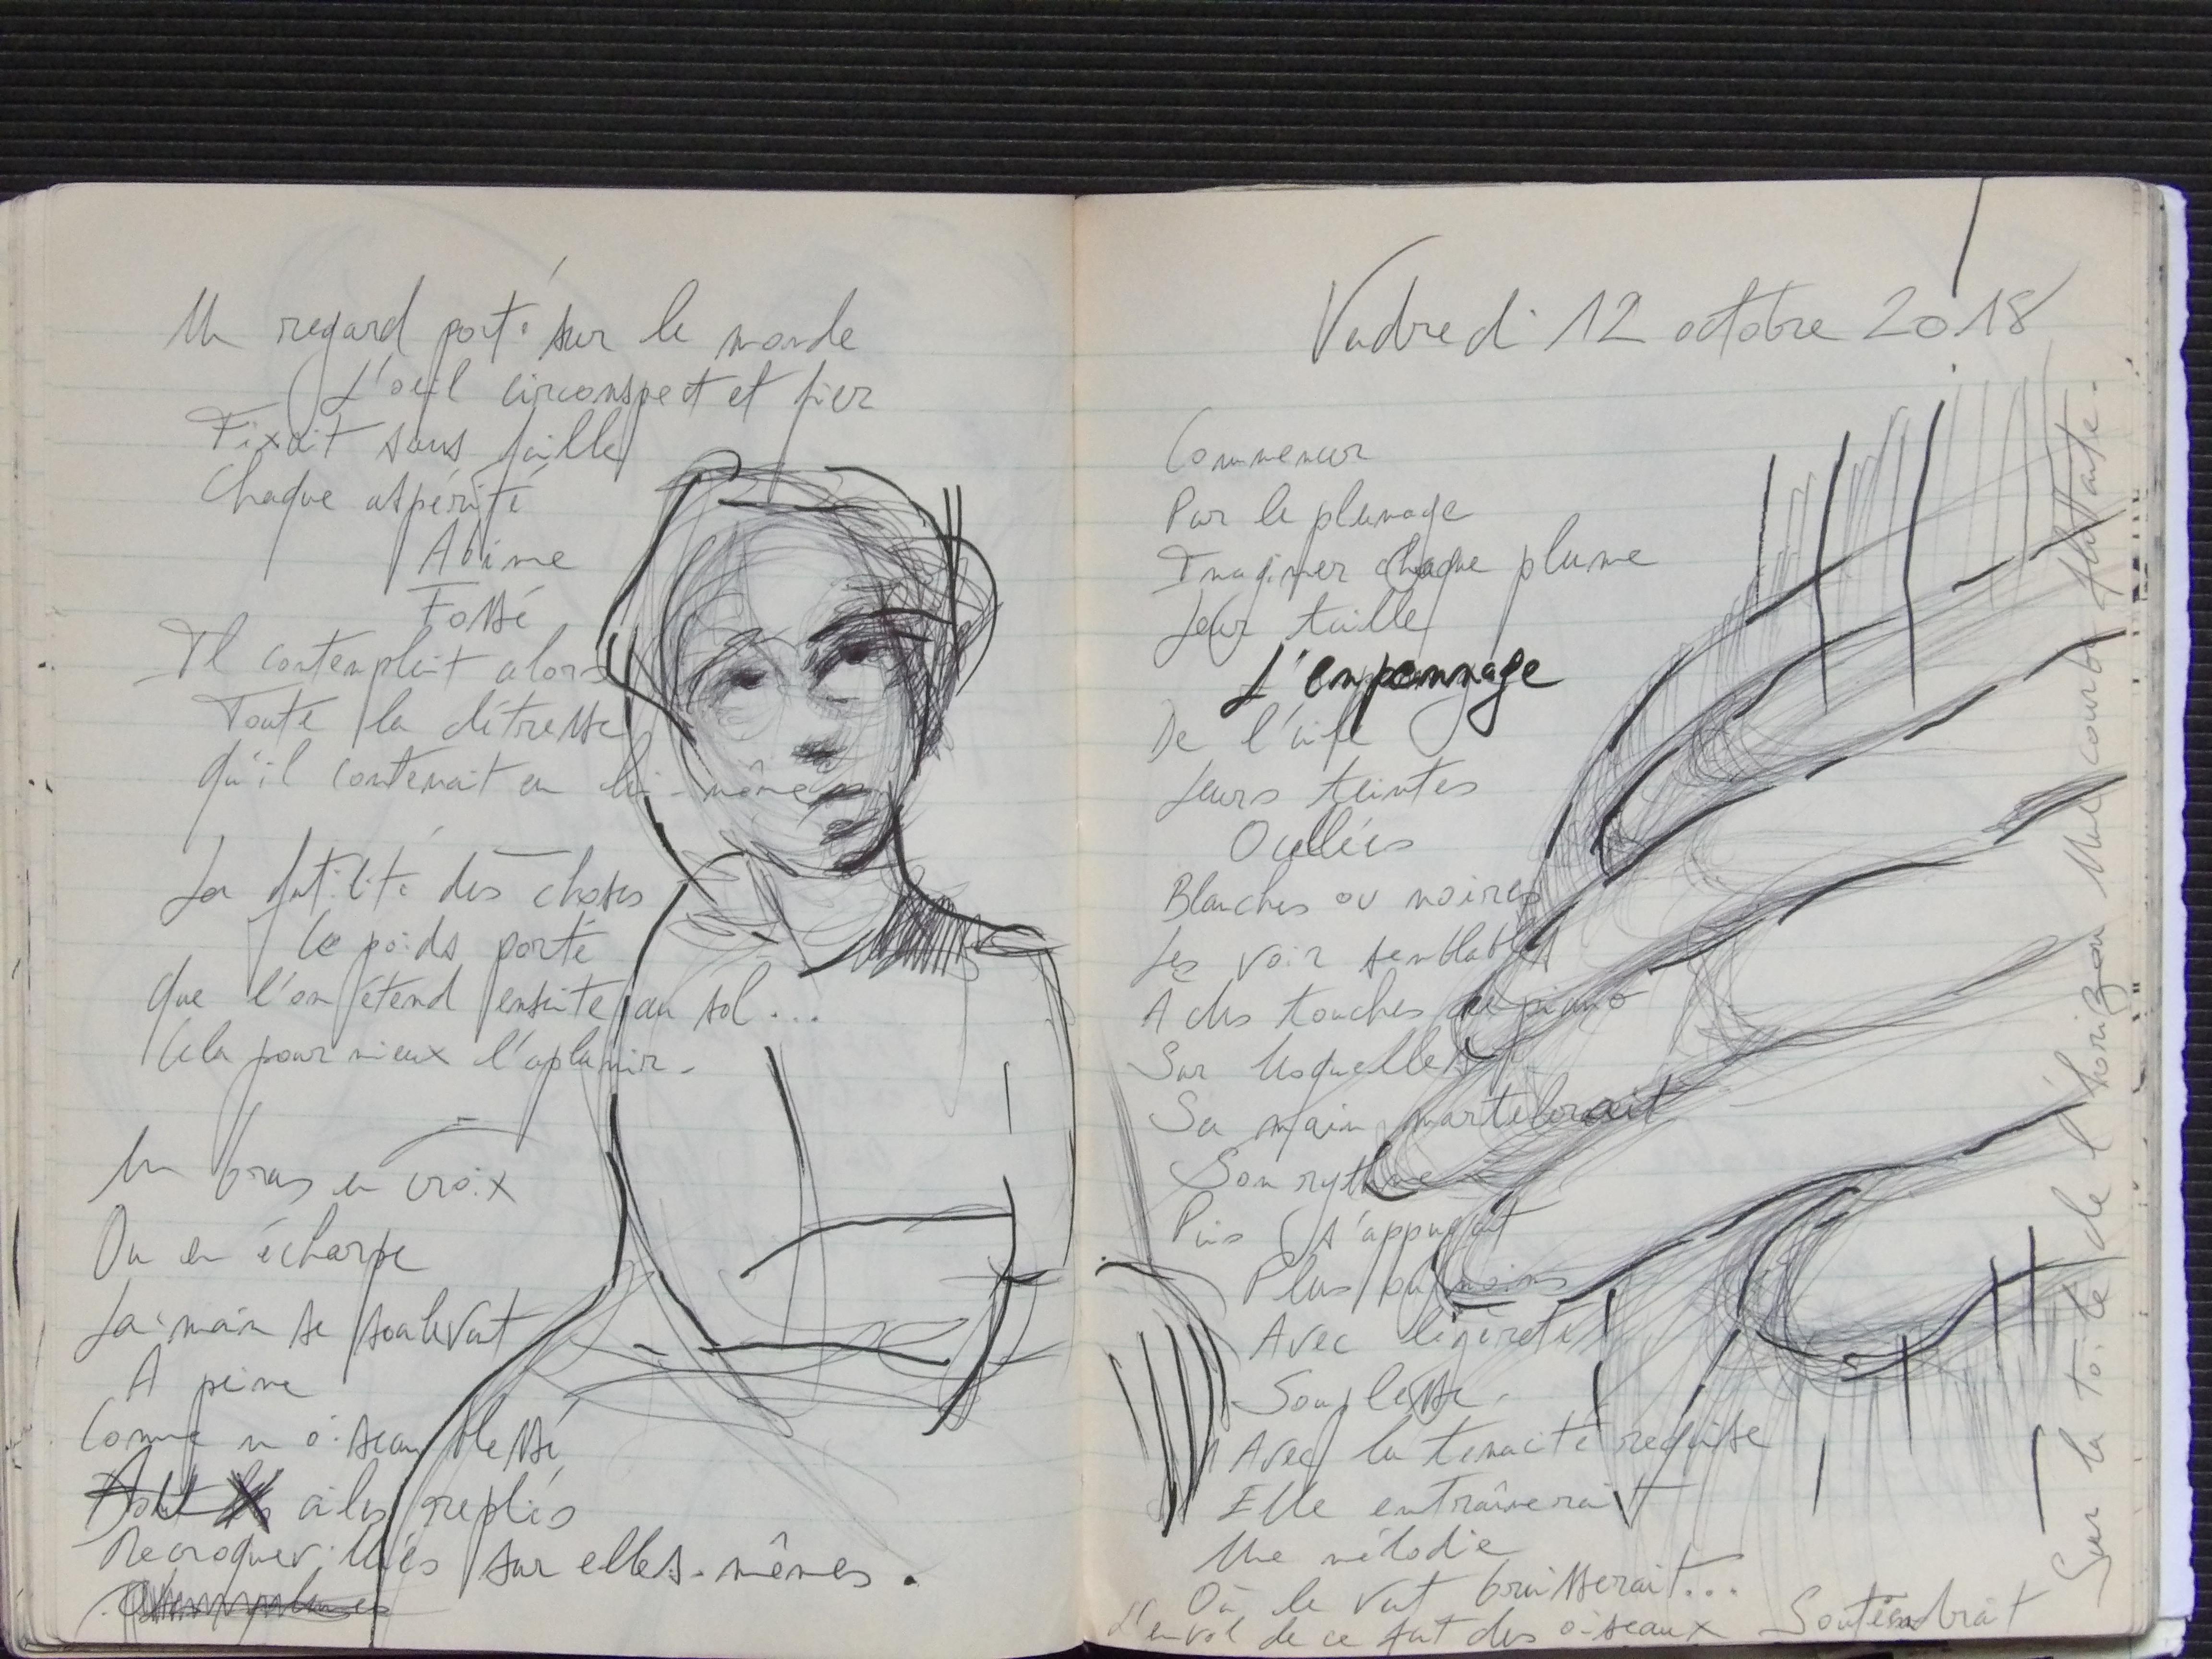 Un regard porté sur le monde
L'oeil circonspect et fier
Fixait sans faille
Chaque aspérité
Abime
Fossé
Il contemplait alors
Toute la détresse
Qu'il contenait en lui-même
La futilité des choses
Le poids porté
Que l'on étend ensuite au sol...
Cela pour mieux l'aplanir.
Un bras en croix
Ou en écharpe
La main se soulevait
A peine
Comme un oiseau blessé
ailes repliés
Recroquevillés sur elles-mêmes.
Vendredi 12 octobre 2018
Commencer
Par le plumage
Imaginer chaque plume
Leur taille
L'empennage
De l'aile
Leurs teintes
Ocellées
Blanches ou noires
Les voir semblables
A des touches de piano
Sur lesquelles
Sa main martèlerait
Son rythme
Puis s'appuyant
Plus ou moins
Avec légèreté
Souplesse.
Avec la tenacité requise
Elle entraînerait
Une mélodie
Où le vent bruisserait...
L'envol de ce fait des oiseaux Soutiendrait
Sur la toile de l'horizon Une courbe flottante.